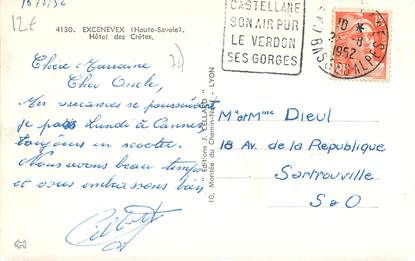 18/8/52
12€
4130. EXCENEVEX (Haute-Savoie).
Hôtel des Crêtes.
CASTELLANE
SON AIR PUR
LE VERDON
SES GORGES
10 *
2 - 8
1952
BASSES ALPES
Chère Marraine
Cher Oncle,
Mes vacances se poursuivent
je pars Lundi à Cannes
toujours en scooter.
Nous avons beau temps
et vous embrassons bien
"Editions J. CELLARD"
10, Montée du Chemin-Neuf - LYON
Mr et Mme Dieul
18 Av. de la République
Sartrouville
S & O